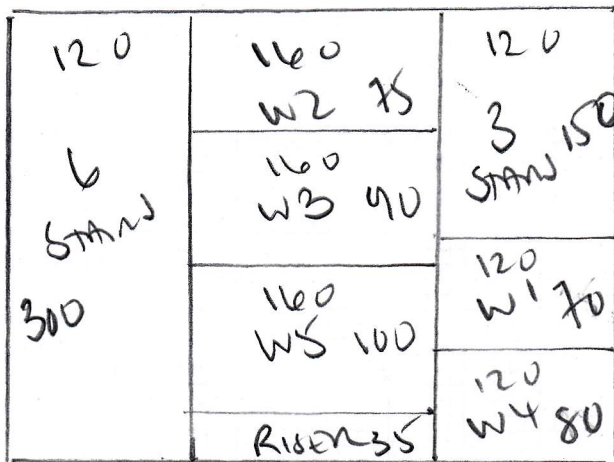 120
6
STAND
300
160
W2 75
160
W3 90
160
W5 100
RISER 35
120
3 150
STAND
120
W1 70
120
W4 80